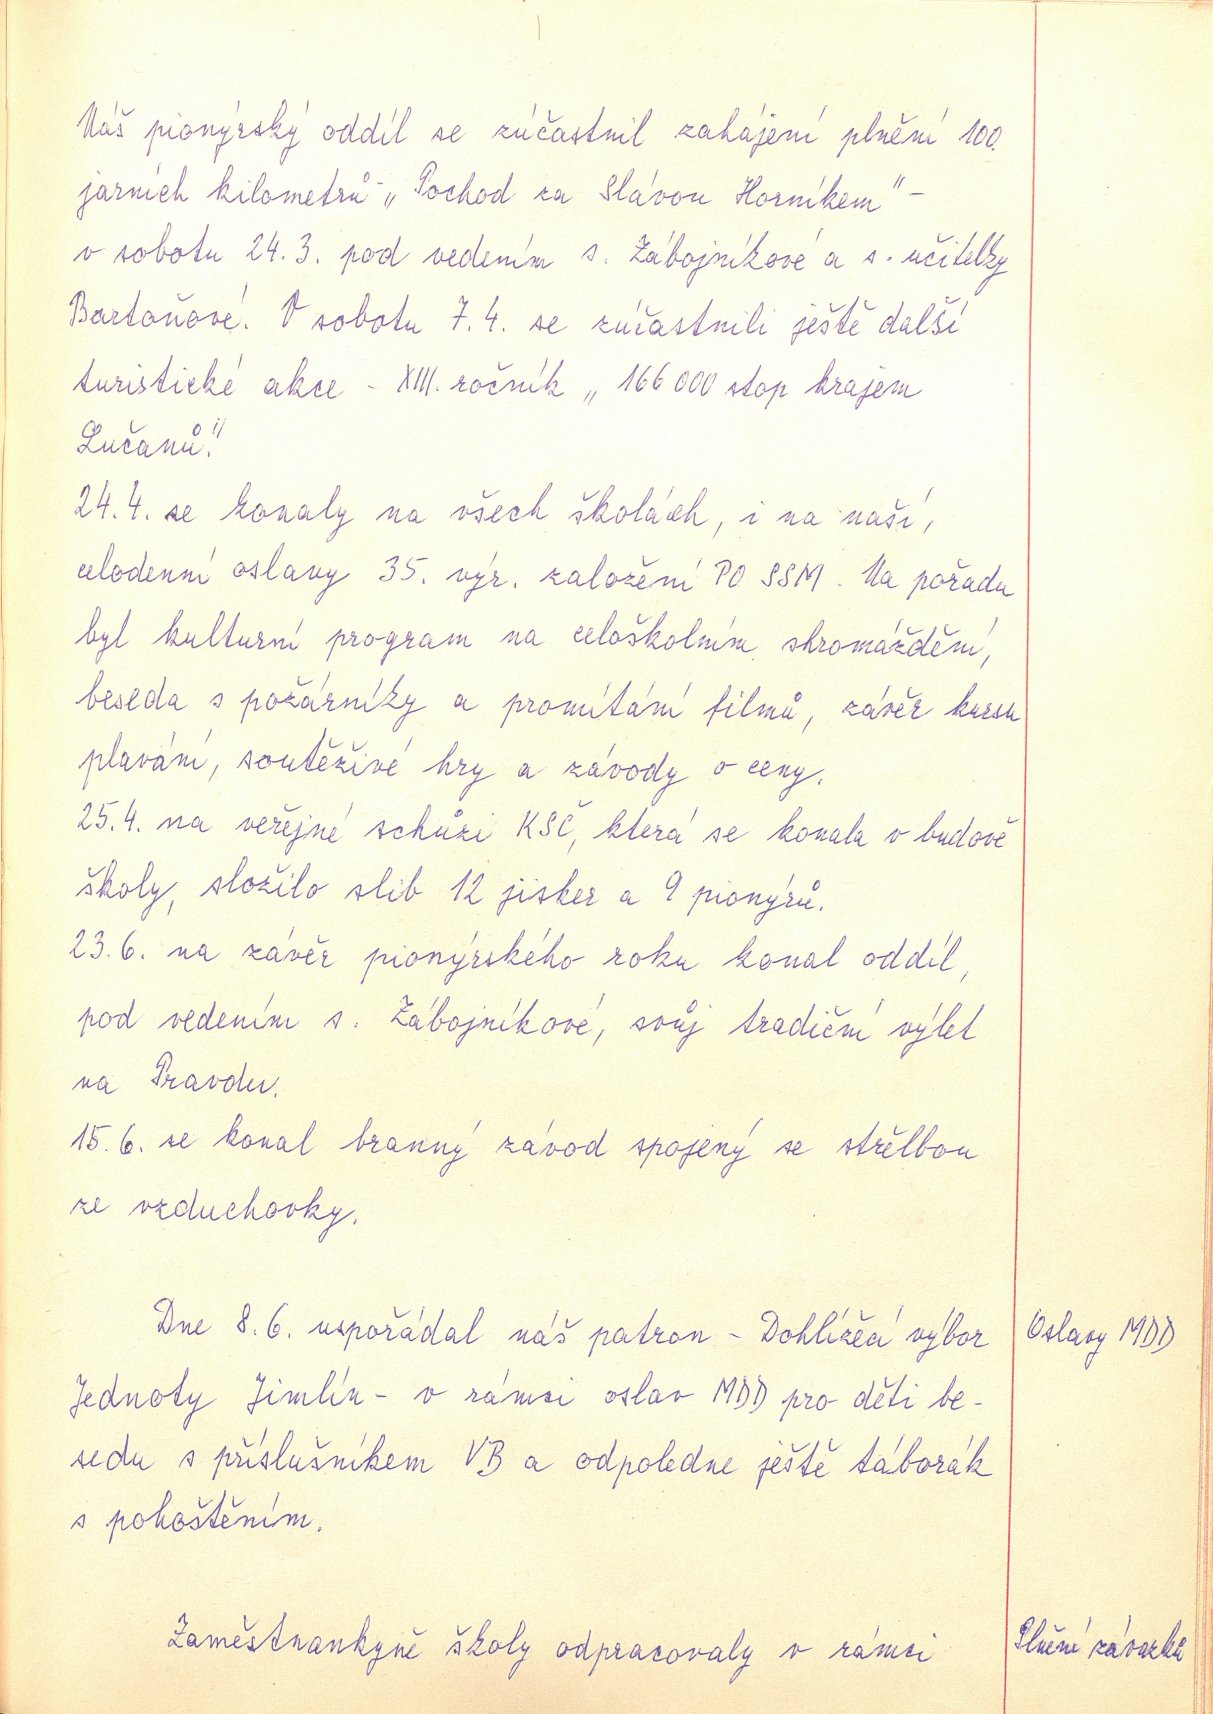 Náš pionýrský oddíl se zúčastnil zahájení plnění 100
jarních kilometrů - „Pochod za Slávou Horníkem" -
v sobotu 24.3. pod vedením s. Zábojníkové a s. učitelky
Bartoňové. V sobotu 7.4. se zúčastnili ještě další
turistické akce - XIII. ročník „166 000 stop krajem
Lučanů."
24.4. se konaly na všech školách, i na naší,
celodenní oslavy 35. výr. založení PO SSM. Na pořadu
byl kulturní program na celoškolním shromáždění,
beseda s požárníky a promítání filmů, závěr kursu
plavání, soutěživé hry a závody o ceny.
25.4. na veřejné schůzi KSČ, která se konala v budově
školy, složilo slib 12 jisker a 9 pionýrů.
23.6. na závěr pionýrského roku konal oddíl,
pod vedením s. Zábojníkové, svůj tradiční výlet
na Pravdu.
15.6. se konal branný závod spojený se střelbou
ze vzduchovky.
Dne 8.6. uspořádal náš patron - Dohlížecí výbor
Oslavy MDD
Jednoty Jimlín - v rámci oslav MDD pro děti be-
sedu s příslušníkem VB a odpoledne ještě táborák
s pohoštěním.
Zaměstnankyně školy odpracovaly v rámci
Plnění závazků